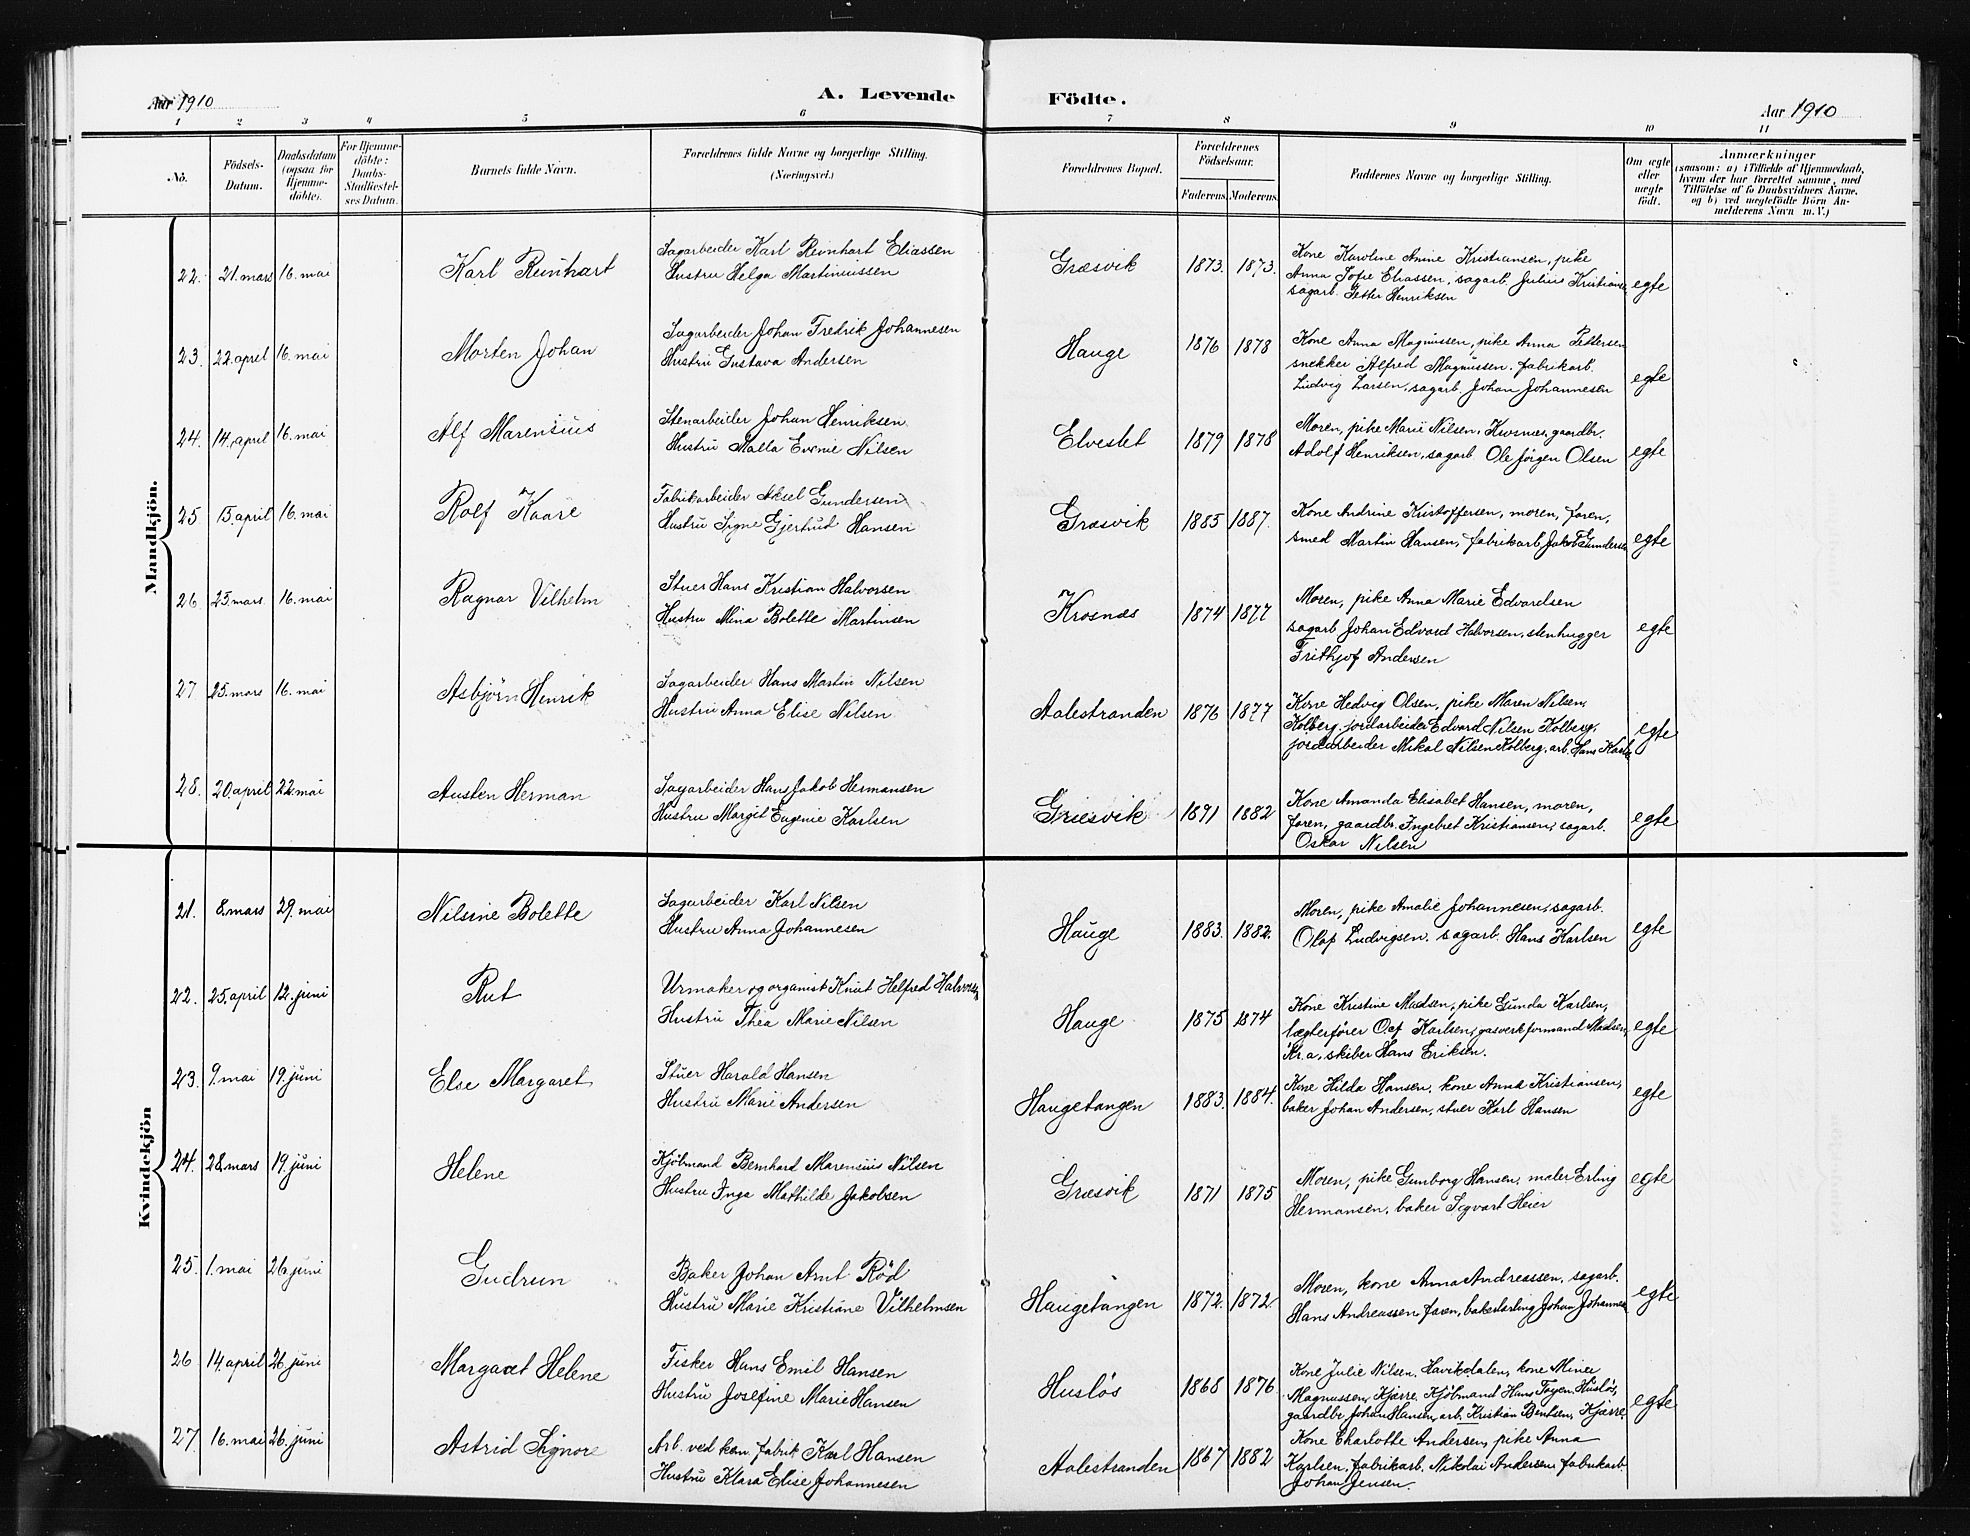 Aar 1910
A. Levende Födte.
Aar 1910
1 2 3 4 5 6 7 8 9 10 11
No.
Födsels-Datum.
Daabsdatum (ogsaa for Hjemme-döbte).
For Hjemme-döbte: Daabs-Stadfæstel-ses Datum.
Barnets fulde Navn.
Forældrenes fulde Navne og borgerlige Stilling. (Næringsvei.)
Forældrenes Bopæl.
Forældrenes Födselsaar.
Faderens. Moderens.
Faddernes Navne og borgerlige Stilling.
Om ægte eller uægte födt.
Anmærkninger
(saasom: a) i Tilfælde af Hjemmedaab,
hvem der har forrettet samme, med
Tilföielse af to Daabsvidners Navne,
og b) ved uægtefödte Börn An-
melderens Navn m. V.)
Mandkjön.
22. 21. mars 16. mai Karl Reinhart
Sagarbeider Karl Reinhart Eliassen
Hustru Helga Martiniussen
Græsvik 1873. 1873.
Kone Karoline Anine Kristiansen, pike
Anna Sofie Eliassen, sagarb. Julius Kristianse
sagarb. Petter Henriksen
egte
23. 22. april 16. mai Morten Johan
Sagarbeider Johan Fredrik Johannesen
Hustru Gustava Andersen
Hauge 1876 1878
Kone Anna Magnussen, pike Anna Pettersen
snekker Alfred Magnussen. fabrikarb.
Ludvig Larsen, sagarb Johan Johannesen
egte
24. 14. april 16. mai Alf Marensius
Stenarbeider Johan Henriksen
Hustru Malla Nilsen
Elvestet 1879 1878
Moren, pike Marie Nilsen, Krosnæs, gaardbr.
Adolf Henriksen, sagarb. Ole Jörgen Olsen
egte
25. 15. april 16. mai Rolf Kaare
Fabrikarbeider Aksel Gundersen
Hustru Signe Gjertrud Hansen
Græsvik 1885 1887.
Kone Andrine Kristoffersen, moren, faren,
smed Martin Hansen, fabrikarb. Jakob Gunderse
egte
26. 25. mars 16. mai Ragnar Vilhelm
Stuer Hans Kristian Halvorsen
Hustru Mina Bolette Martinsen
Krosnæs 1874 1877
Moren, pike Anna Marie Edvardsen
sagarb Johan Edvard Halvorsen, stenhugger
Frithjof Andersen
egte
27 25. mars 16. mai Asbjörn Henrik
Sagarbeider Hans Martin Nilsen
Hustru Anna Elise Nilsen
Aalestranden 1876 1877
Kone Hedvig Olsen, pike Maren Nilsen,
Kolberg, jordarbeider Edvard Nilsen Kolberg,
jordarbeider Mikal Nilsen Kolberg, arb. Hans
egte
28. 20. april 22. mai Austen Herman
Sagarbeider Hans Jakob Hermansen
Hustru Margit Eugenie Karlsen
Græsvik 1891 1882
Kone Amanda Elisabet Hansen, moren,
faren, gaardbr. Ingebret Kristiansen, sagarb.
Oskar Nilsen
egte
Kvindekjön
21. 8. mars 29. mai Nilsine Bolette
Sagarbeider Karl Nilsen
Hustru Anna Johannesen
Hauge 1883. 1882.
Moren, pike Amalie Johannesen, sagarb.
Olaf Ludvigsen, sagarb. Hans Karlsen
egte
22. 25. april 12. juni Rut
Urmaker og organist Knut Helfred Halvorsen
Hustru Thea Marie Nilsen
Hauge 1875 1874
Kone Kristine Madsen, pike Gunda Karlsen,
lægterförer Karlsen, gasverkformand Madsen,
Kr.a, skiber Hans Eriksen.
egte
23. 9. mai 19. juni Else Margaret
Stuer Harald Hansen
Hustru Marie Andersen
Haugetangen 1883. 1884.
Kone Hilda Hansen, kone Anna Kristiansen,
baker Johan Andersen, stuer Karl Hansen
egte
24. 28. mars 19. juni Helene
Kjöbmand Bernhard Marenius Nilsen
Hustru Inga Mathilde Jakobsen
Græsvik 1871 1875
Moren, pike Gunborg Hansen, maler Erling
Hermansen, baker Sigvart Heier
egte
25. 1. mai 26. juni Gudrun
Baker Johan Arnt Röd
Hustru Marie Kristiane Vilhelmsen
Haugetangen 1872. 1872.
Moren, kone Anna Andreassen, sagarb.
Hans Andreassen, faren, bakerlærling Johan Johannes
egte
26 14. april 26. juni Margaret Helene
Fisker Hans Emil Hansen
Hustru Josefine Marie Hansen
Huslös 1868 1876
Kone Julie Nilsen, Havikdalen, kone Mina
Magnussen, Kjærre, Kjöbmand Hans Huslös,
gaardbr. Johan Hansen, arb. Kristian Bentsen, Kjærre
egte
27 16. mai 26. juni Astrid Signore
Arb. ved kem. fabrik Karl Hansen
Hustru Klara Elise Johannesen
Aalestranden 1867 1882
Kone Charlotte Andersen, pike Anna
Karlsen, fabrikarb. Nikolai Andersen, fabrikarb.
Johan Jensen.